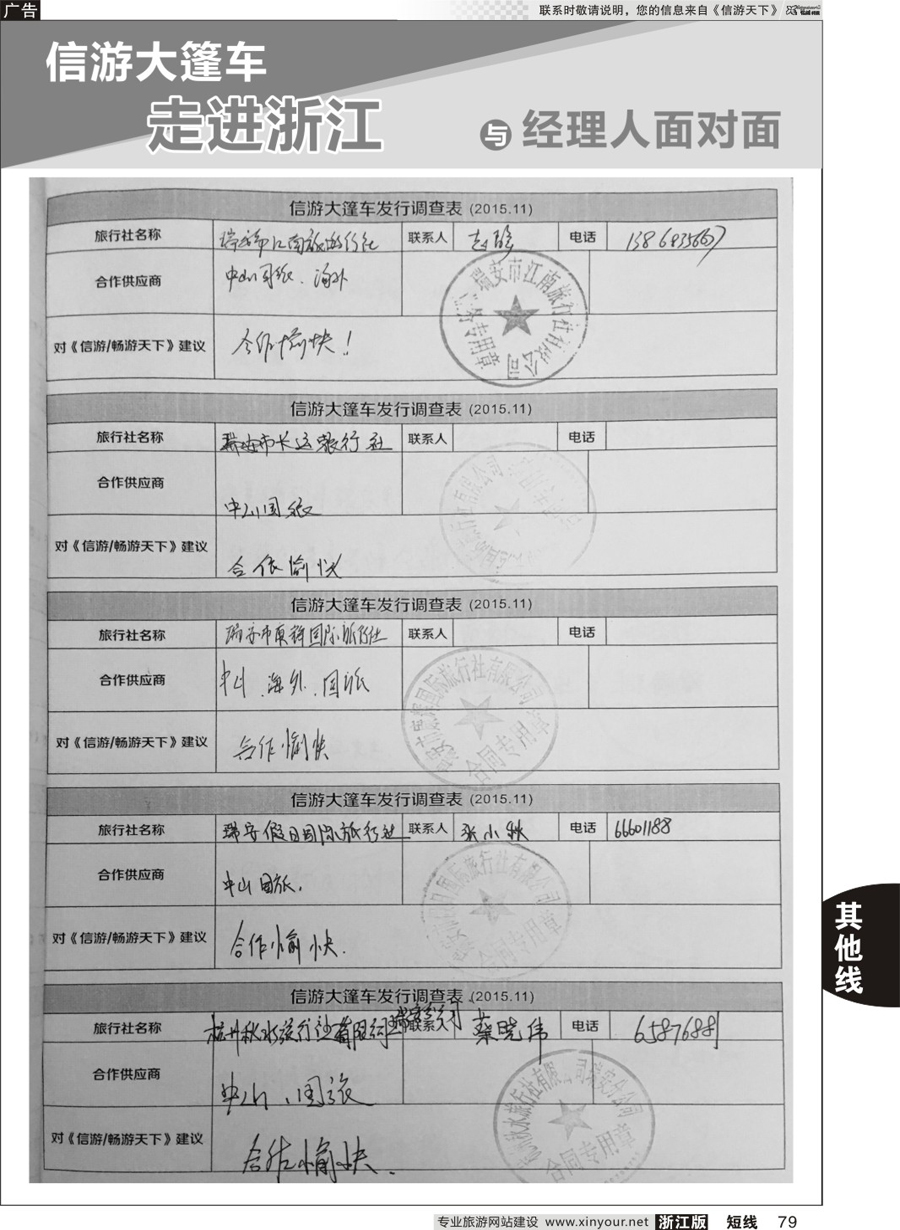 广告
联系时敬请说明，您的信息来自《信游天下》
信游大篷车
走进浙江
与 经理人面对面
信游大篷车发行调查表 (2015.11)
旅行社名称 瑞安市江南旅游行社 联系人 电话
合作供应商 中山国旅、海外
瑞安市江南旅行社有限公司 业务专用章
对《信游/畅游天下》建议 合作愉快！
信游大篷车发行调查表 (2015.11)
旅行社名称 瑞安市长运旅行社 联系人 电话
合作供应商 中山国旅
对《信游/畅游天下》建议 合作愉快
信游大篷车发行调查表 (2015.11)
旅行社名称 国际旅行社 联系人 电话
合作供应商 中山、海外、国旅
国际旅行社有限公司 合同专用章
对《信游/畅游天下》建议 合作愉快
信游大篷车发行调查表 (2015.11)
旅行社名称 瑞安假日国际旅行社 联系人 张小秋 电话 66601188
合作供应商 中山国旅.
旅行社有限公司 合同专用章
对《信游/畅游天下》建议 合作愉快.
信游大篷车发行调查表 (2015.11)
旅行社名称 杭州秋水旅行社有限公司瑞安分公司 联系人 蔡晓伟 电话 65876881
合作供应商 中山、国旅
秋水旅行社有限公司瑞安分公司 合同专用章
对《信游/畅游天下》建议 合作愉快.
其他线
专业旅游网站建设 www.xinyour.net 浙江版 短线 79